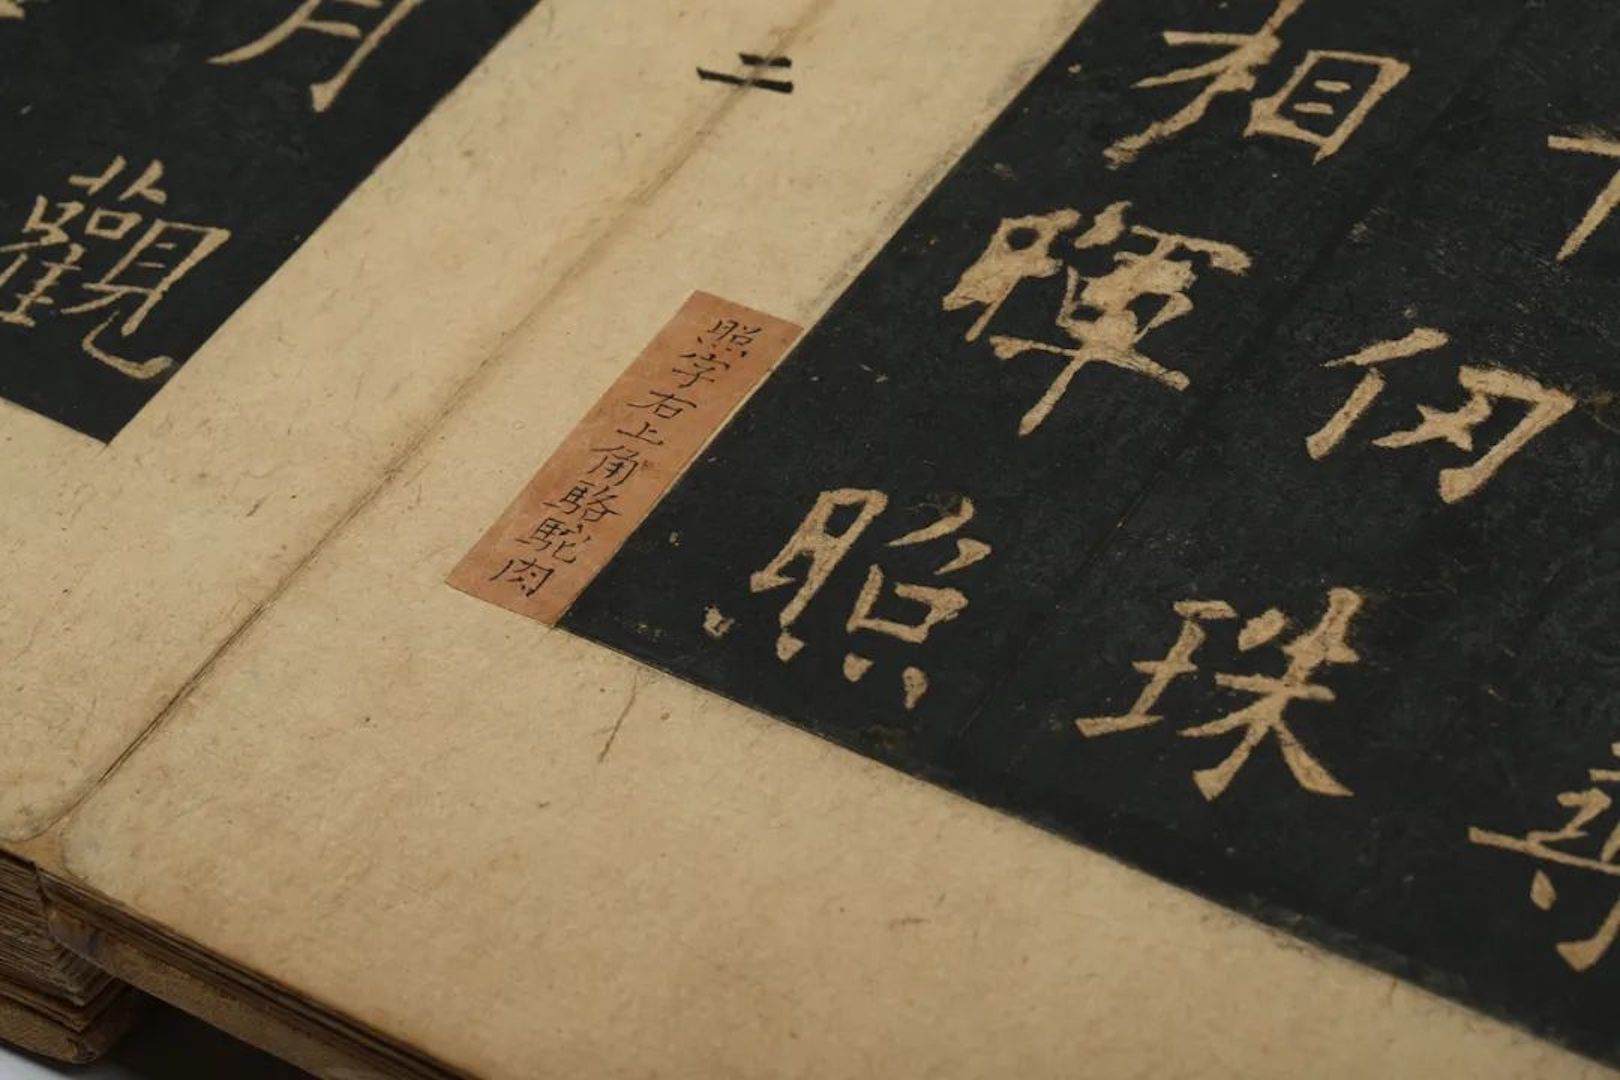 仞
珠
尋
相
暉
照
照字右上角駱駝肉
二
月
觀